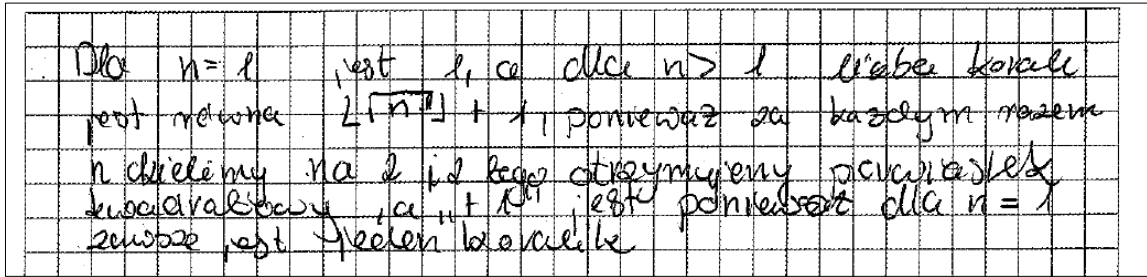 Dla n=1 jest 1, a dla n>1 liczba korali
jest równa ⌊√n⌋ + 1, ponieważ za każdym razem
n dzielimy na 2 i z tego otrzymujemy pierwiastek
kwadratowy, a „+ 1" jest ponieważ dla n=1
zawsze jest jeden koralik